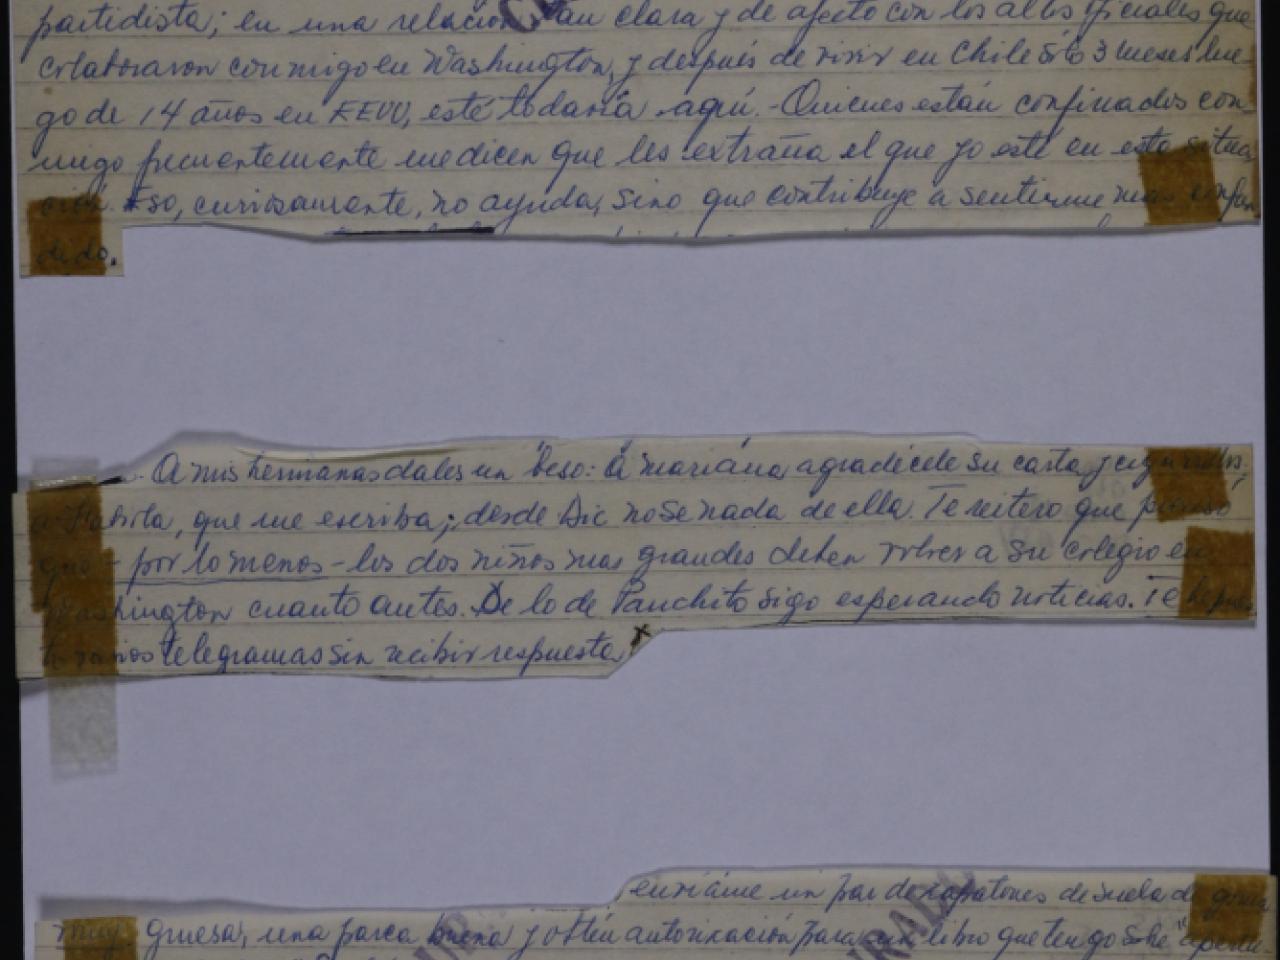 partidista; en una relación tan clara y de afecto con los altos oficiales que
colaboraron conmigo en Washington, y después de vivir en Chile sólo 3 meses lue-
go de 14 años en EEUU, esté todavía aquí. - Quienes están confinados con-
migo frecuentemente me dicen que les extraña el que yo esté en esta situa
ción. Eso, curiosamente, no ayuda, sino que contribuye a sentirme más confun
dido.
. A mis hermanas dales un beso: a Mariana agradécele su carta y cigarrillos;
a Fabiola, que me escriba; desde Dic no se nada de ella. Te reitero que pienso
que - por lo menos - los dos niños mas grandes deben volver a su colegio en
Washington cuanto antes. De lo de Panchito sigo esperando noticias. Te he pues
to varios telegramas sin recibir respuesta.
envíame un par de zapatones de suela de goma
muy gruesa, una parca buena y obtén autorización para un libro que tengo sobre